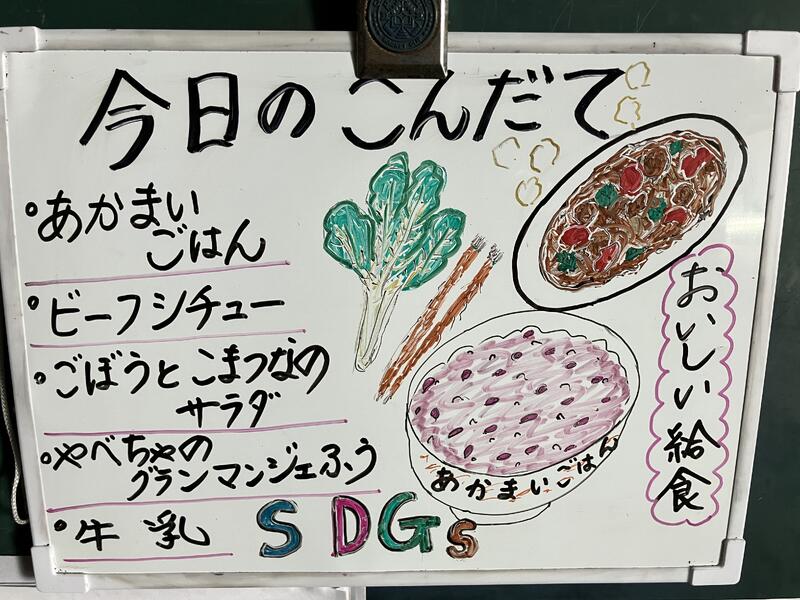 今日のこんだて
あかまい
ごはん
ビーフシチュー
ごぼうとこまつなの
サラダ
やべちゃの
グランマンジェふう
牛乳
SDGs
あかまいごはん
おいしい給食